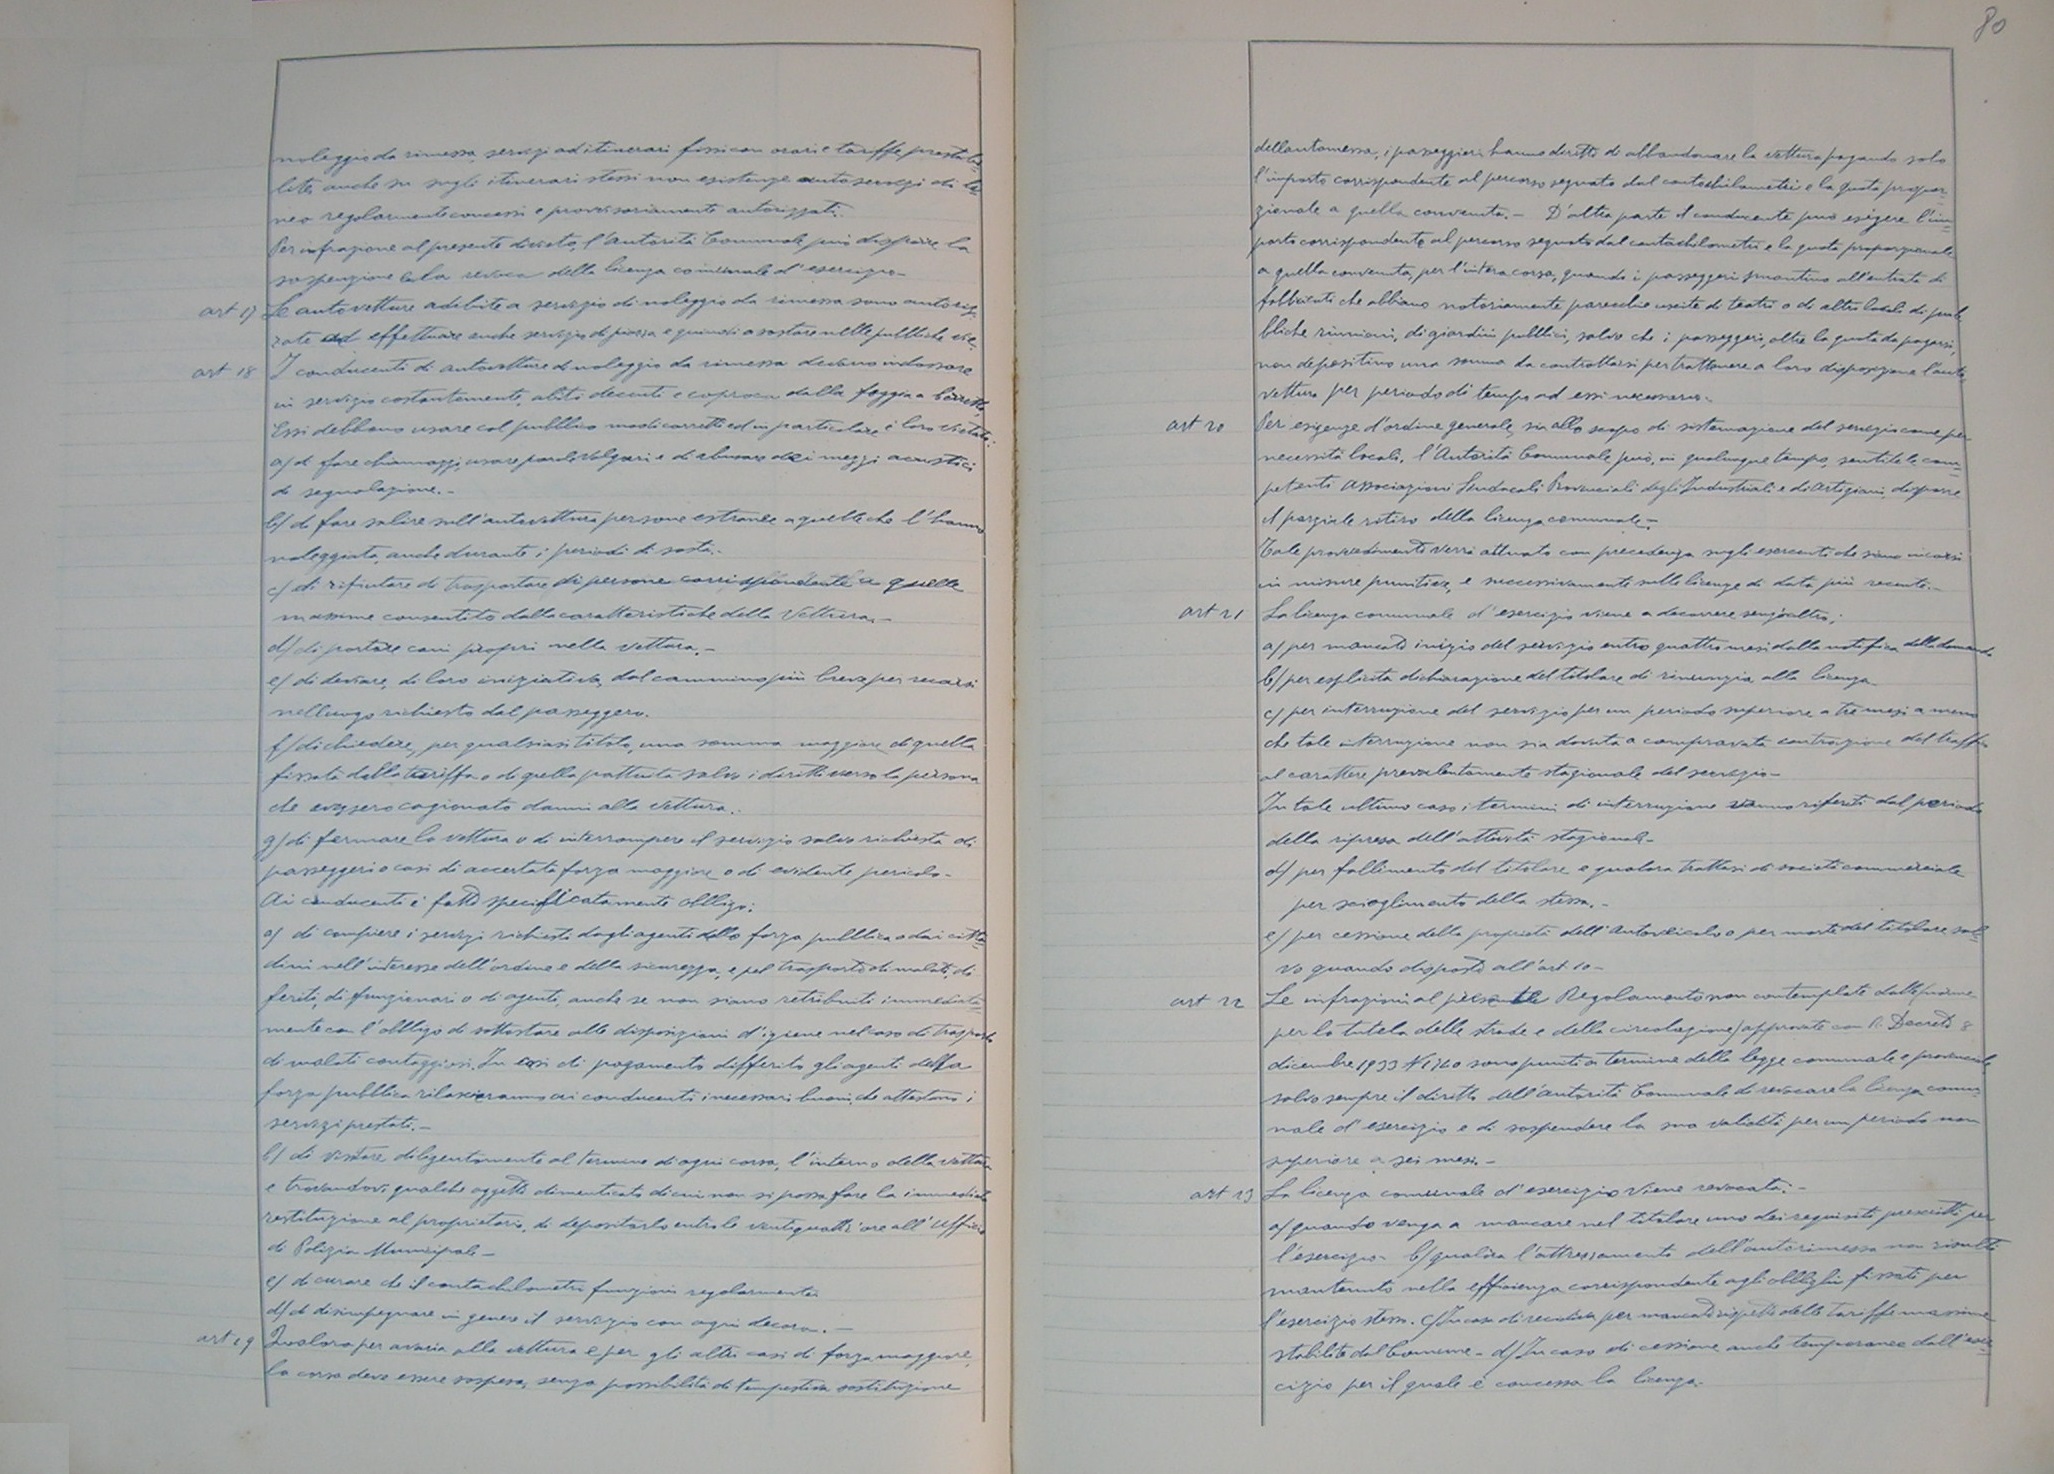 noleggio da rimessa, servizi ad itinerari fissi con orari e tariffe prestabi-
lite, anche su sugli itinerari stessi non esistenze autoservizi di li-
nea regolarmente concessi e provvisoriamente autorizzati.
Per infrazione al presente divieto, l'Autorità Comunale può disporre la
sospenzione e la revoca della licenza comunale d'esercizio-
art 17 Le autovetture adebite a servizio di noleggio da rimessa sono autoriz-
zate ad effettuare anche servizio di piazza e quindi a sostare nelle pubbliche vie.
art 18 I conducenti di autovetture di noleggio da rimessa devono indossare
in servizio costantemente, abiti decenti e copricapo dalla foggia a berretto.
Essi debbono usare col pubblico modi corretti ed in particolare è loro vietato:
a) di fare chiamazzi, usare parole volgari e di abusare dei mezzi acustici
di segnalazione.-
b) di fare salire sull'autovettura persone estranee a quelle che l'hanno
noleggiata, anche durante i periodi di sosta.-
c) di rifiutare di trasportare di persone corrispondente a quelle
massime consentito dalla caratteristiche della Vettura.-
d) di portare cani propri nella vettura.-
e) di deviare, di loro iniziativa, dal cammino più breve per recarsi
nel luogo richiesto dal passeggero.
f) di chiedere, per qualsiasi titolo, una somma maggiore di quella
fissata dalla tariffa o di quella pattuita salvo i diritti verso la persona
che avessero cagionato danni alla vettura.-
g) di fermare la vettura o di interrompere il servizio salvo richiesta di
passeggeri o casi di accertata forza maggiore o di evidente pericolo-
Ai conducenti è fatto specificatamente obbligo:
a) di compiere i servizi richiesti dagli agenti della forza pubblica o dai citta-
dini nell'interesse dell'ordine e della sicurezza, e pel trasporto di malati, di
feriti, di funzionari o di agenti, anche se non siano retribuiti immediata-
mente con l'obbligo di sottostare alle disposizioni d'igiene nel caso di trasporto
di malati contaggiosi. In casi di pagamento differito gli agenti della
forza pubblica rilascieranno ai conducenti i necessari buoni, che attestano i
servizi prestati.-
b) di visitare diligentemente al termine di ogni corsa, l'interno della vettura
e trovandovi qualche oggetto dimenticato di cui non si possa fare la immediata
restituzione al proprietario, di depositarlo entro le ventiquattr'ore all'Ufficio
di Polizia Municipale-
c) di curare che il contachilometri funzioni regolarmente
d) di disimpegnare in genere il servizio con ogni decoro.-
art 19 Qualora per avaria alla vettura e per gli altri casi di forza maggiore,
la corsa deve essere sospesa, senza possibilità di tempestiva sostituzione
80
dell'autorimessa, i passeggieri hanno diritto di abbandonare la vettura pagando solo
l'importo corrispondente al percorso segnato dal contachilometri e la quota propor-
zionale a quella convenuta.- D'altra parte il conducente può esigere l'im-
porto corrispondente al percorso segnato dal contachilometri e la quota proporzionale
a quella convenuta, per l'intera corsa, quando i passeggeri smontino all'entrata di
fabbricati che abbiano notoriamente parecchie uscite di teatri o di altri locali di pub-
bliche riunioni, di giardini pubblici, salvo che i passeggeri, oltre la quota da pagarsi,
non depositino una somma da contrattarsi per trattenere a loro disposizione l'auto-
vettura per periodo di tempo ad essi necessario.-
art 20 Per esigenze d'ordine generale, sia allo scopo di sistemazione del servizio come per
necessità locali, l'Autorità Comunale può, in qualunque tempo, sentite le com-
petenti Associazioni Sindacali Provinciali degli Industriali e di Artigiani, disporre
il parziale ritiro della licenza comunale.-
Tale provvedimento verrà attuato con precedenza sugli esercenti che siano incorsi
in misure punitive, e successivamente sulle licenze di data più recente.-
art 21 La licenza comunale d'esercizio viene a decorrere senz'altro:
a) per mancato inizio del servizio entro quattro mesi dalla notifica della domanda
b) per esplicita dichiarazione del titolare di rinunzia alla licenza.
c) per interruzione del servizio per un periodo superiore a tre mesi a meno
che tale interruzione non sia dovuta a comprovata contrazione del traffico
al carattere prevalentemente stagionale del servizio-
In tale ultimo caso i termini di interruzione vanno riferiti dal periodo
della ripresa dell'attività stagionale-
d) per fallimento del titolare e qualora trattasi di società commerciale
per scioglimento della stessa.-
e) per cessione della proprietà dell'Autoveicolo o per morte del titolare sal-
vo quando disposto all'art 10-
art 22 Le infrazioni al presente Regolamento non contemplate dalle norme
per la tutela delle strade e della circolazione) approvate con R. Decreto 8
dicembre 1933 N 1740 sono puniti a termine della legge comunale e provinciale
salvo sempre il diritto dell'Autorità Comunale di revocare la licenza comu-
nale d'esercizio e di sospendere la sua validità per un periodo non
superiore a sei mesi.-
art 23 La licenza comunale d'esercizio viene revocata:-
a) quando venga a mancare nel titolare uno dei requisiti prescritti per
l'esercizio- b) qualora l'attrezzamento dell'autorimessa non risulti
mantenuto nella efficienza corrispondente agli obblighi fissati per
l'esercizio stesso. c) In caso di recidiva per mancato rispetto delle tariffe massime
stabilite dal Comune- d) In caso di cessione anche temporanea dall'eser-
cizio per il quale è concessa la licenza.